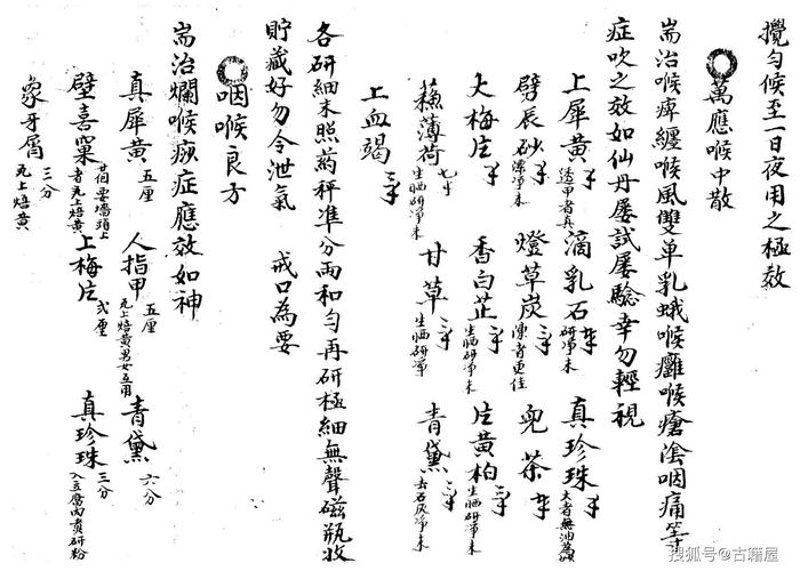 攪匀候至一日夜用之極效
萬應喉中散
耑治喉痺纏喉風雙单乳蛾喉癰喉瘡 咽痛等
症吹之效如仙丹屡試屡驗幸勿輕視
上犀黄 透甲者真 滴乳石 研净末 真珍珠
劈辰砂 漂净末 燈草炭 陳者更佳 兜茶
大梅片 香白芷 生晒研净末 片黄柏 生晒研净末
蘓薄荷 生晒研净末 甘草 生晒研净 青黛 去石灰净末
上血竭
各研細末照药秤准分兩和匀再研極細無聲磁瓶收
貯藏好勿令泄氣 戒口為要
咽喉良方
耑治爛喉痧症應效如神
真犀黄 五厘 人指甲 五厘 瓦上焙黄男女互用 青黛 六分
壁喜窠 廿個要墻頭上者瓦上焙黄 上梅片 弍厘 真珍珠 三分 入豆腐内煮研粉
象牙屑 三分 瓦上焙黄
搜狐号@古籍屋